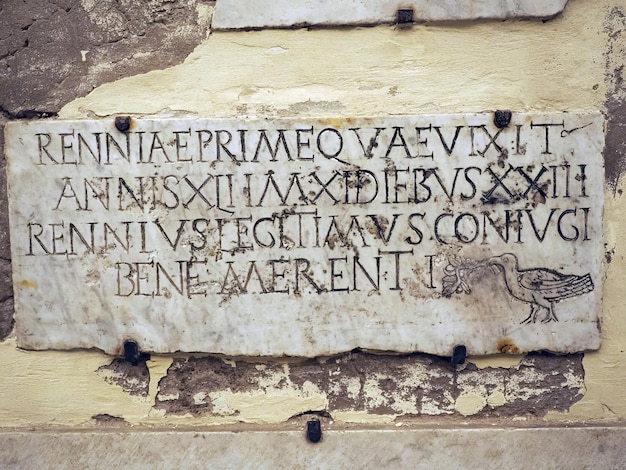 RENNIAE PRIME QVAE VIXIT
ANNIS XLII M XI DIEBVS XXIII
RENNIVS LEGITIMVS CONIVGI
BENE MERENTI